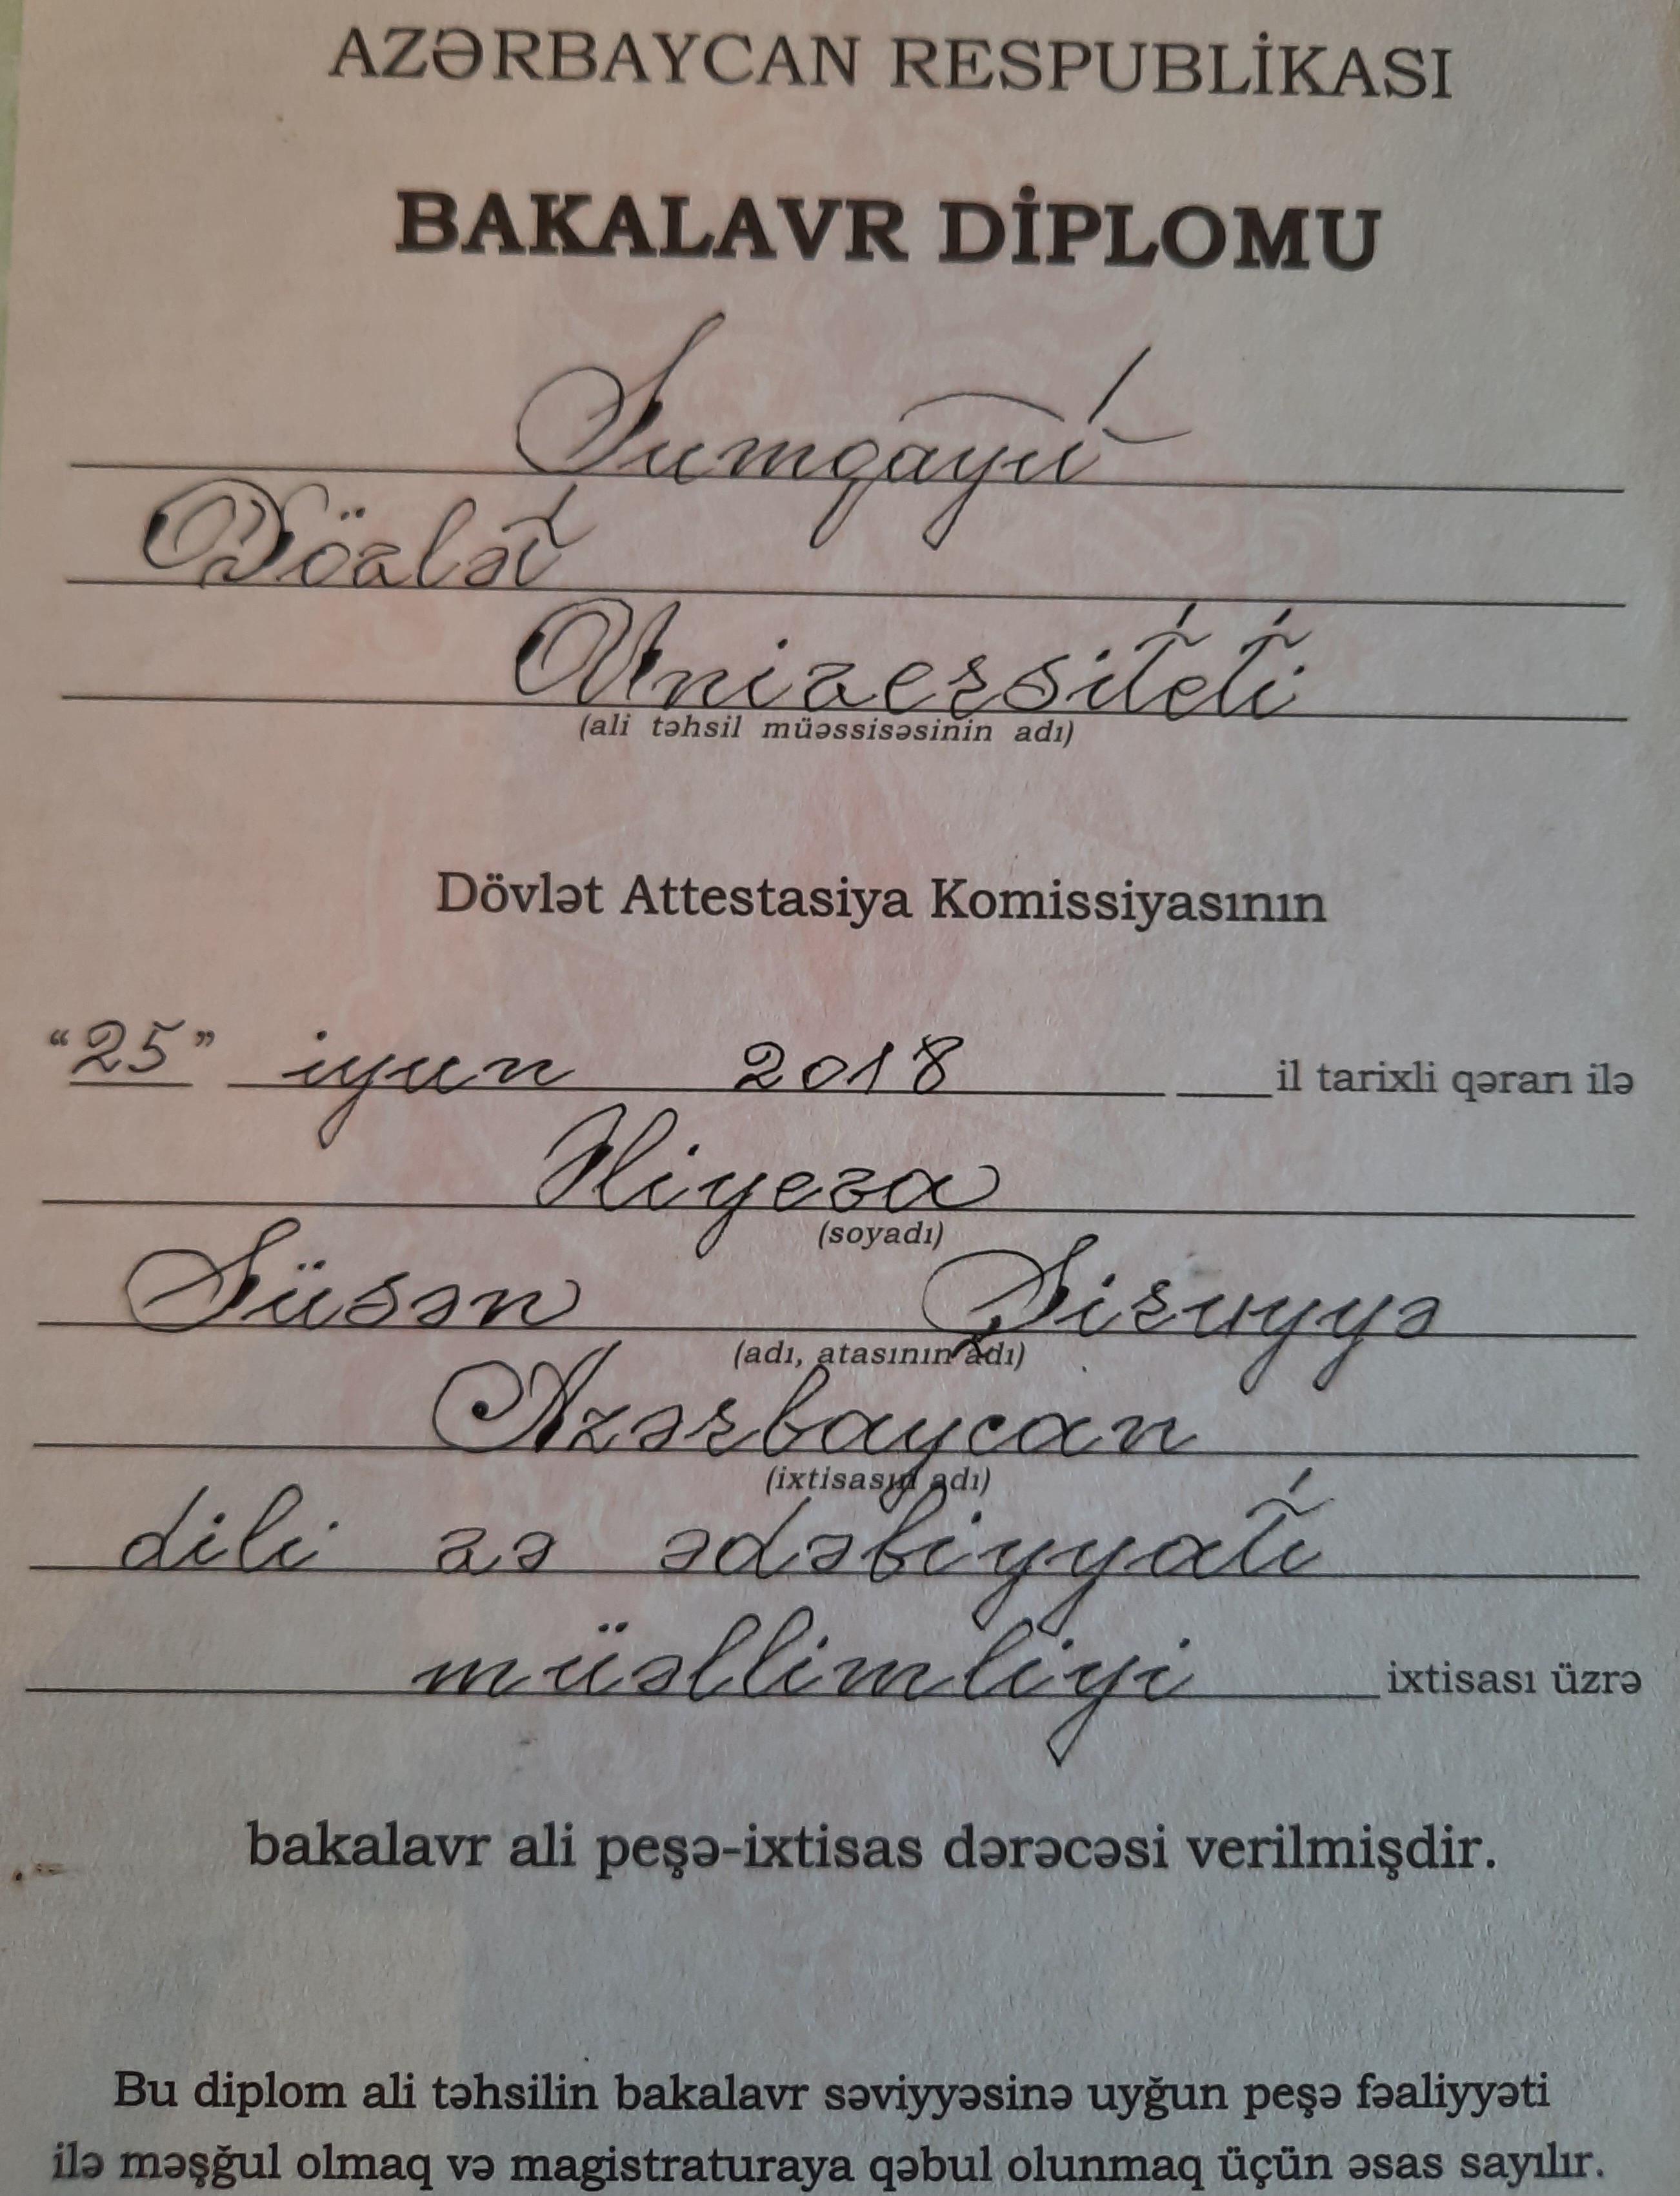 AZƏRBAYCAN RESPUBLİKASI
BAKALAVR DİPLOMU
Sumqayıt
Dövlət
Universiteti
(ali təhsil müəssisəsinin adı)
Dövlət Attestasiya Komissiyasının
“25” iyun 2018 il tarixli qərarı ilə
Əliyeva
(soyadı)
Süsən Şiruyyə
(adı, atasının adı)
Azərbaycan
(ixtisasın adı)
dili və ədəbiyyatı
müəllimliyi ixtisası üzrə
bakalavr ali peşə-ixtisas dərəcəsi verilmişdir.
Bu diplom ali təhsilin bakalavr səviyyəsinə uyğun peşə fəaliyyəti
ilə məşğul olmaq və magistraturaya qəbul olunmaq üçün əsas sayılır.